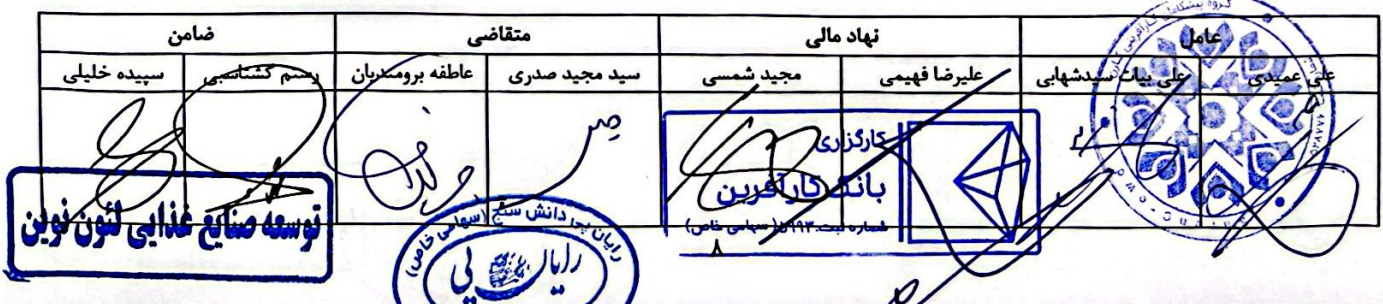 عامل نهاد مالی متقاضی ضامن
علی عمیدی علی بیات سیدشهابی علیرضا فهیمی مجید شمسی سید مجید صدری عاطفه برومندیان رستم گشتاسبی سپیده خلیلی
کارگزاری
بانک کارآفرین
شماره ثبت: (سهامی خاص)
توسعه صنایع غذایی لئون نوین
رایان پی دانش سنج (سهامی خاص)
رایان پی
۸